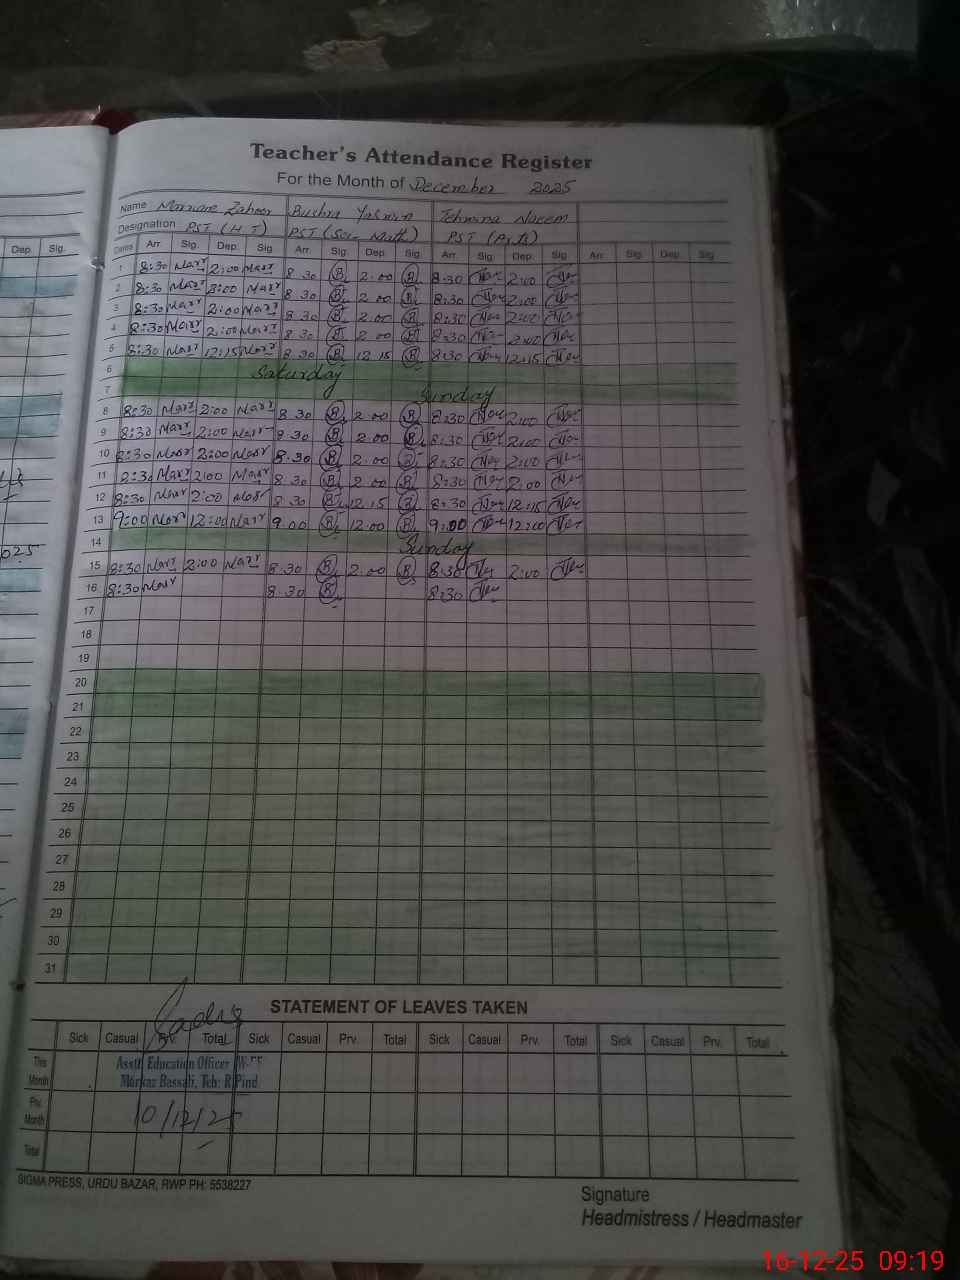 Teacher's Attendance Register
For the Month of December 2025
Name Zaheer Bushra Yasmin Tehmina Naeem
Designation PST (H.T) PST (Sci-Math) PST (Arts)
Dates Arr. Sig. Dep. Sig. Arr. Sig. Dep. Sig. Arr. Sig. Dep. Sig. Arr. Sig. Dep. Sig.
Dep. Sig.
1 8:30 2:00 8 30 2.00 8:30 2:00
2 8:30 2:00 8 30 2 00 8:30 2:00
3 8:30 2:00 8 30 2.00 8:30 2:00
4 8:30 2:00 8 30 2 00 8:30 2:00
5 8:30 12:15 8 30 12.15 8:30 12:15
6 Saturday
7 Sunday
8 8:30 2:00 8 30 2.00 8:30 2:00
9 8:30 2:00 8 30 2.00 8:30 2:00
10 2:00 8.30 2.00 8:30 2:00
11 2:00 8 30 2 00 8:30 2:00
12 8:30 2:00 8 30 12.15 8:30 12:15
13 9:00 12:00 9.00 12.00 9:00 12:00
14 Sunday
15 8:30 2:00 8.30 2.00 8:30 2:00
16 8:30 8 30 8:30
17
18
19
20
21
22
23
24
25
26
27
28
29
30
31
STATEMENT OF LEAVES TAKEN
Sick Casual Prv. Total Sick Casual Prv. Total Sick Casual Prv. Total Sick Casual Prv. Total
This Month
Asstt. Education Officer
Markaz Bassali, Teh: R.Pind
Prv. Month
10/12/25
Total
SIGMA PRESS, URDU BAZAR, RWP PH: 5538227
Signature
Headmistress / Headmaster
16-12-25 09:19